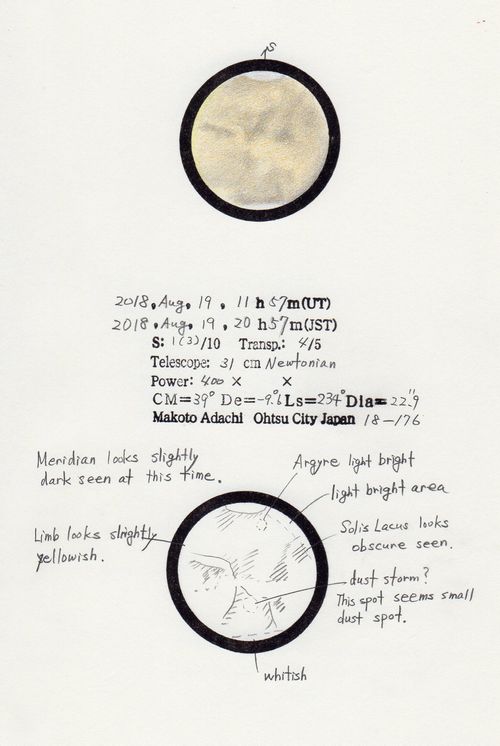 S
2018, Aug, 19, 11 h 57 m (UT)
2018, Aug, 19, 20 h 57 m (JST)
S: 1(3)/10 Transp.: 4/5
Telescope: 31 cm Newtonian
Power: 400 × ×
CM=39° De=-9.6° Ls=234° Dia=22".9
Makoto Adachi Ohtsu City Japan 18-176
Meridian looks slightly
dark seen at this time.
Argyre light bright
light bright area
Limb looks slightly
yellowish.
Solis Lacus looks
obscure seen.
dust storm?
This spot seems small
dust spot.
whitish